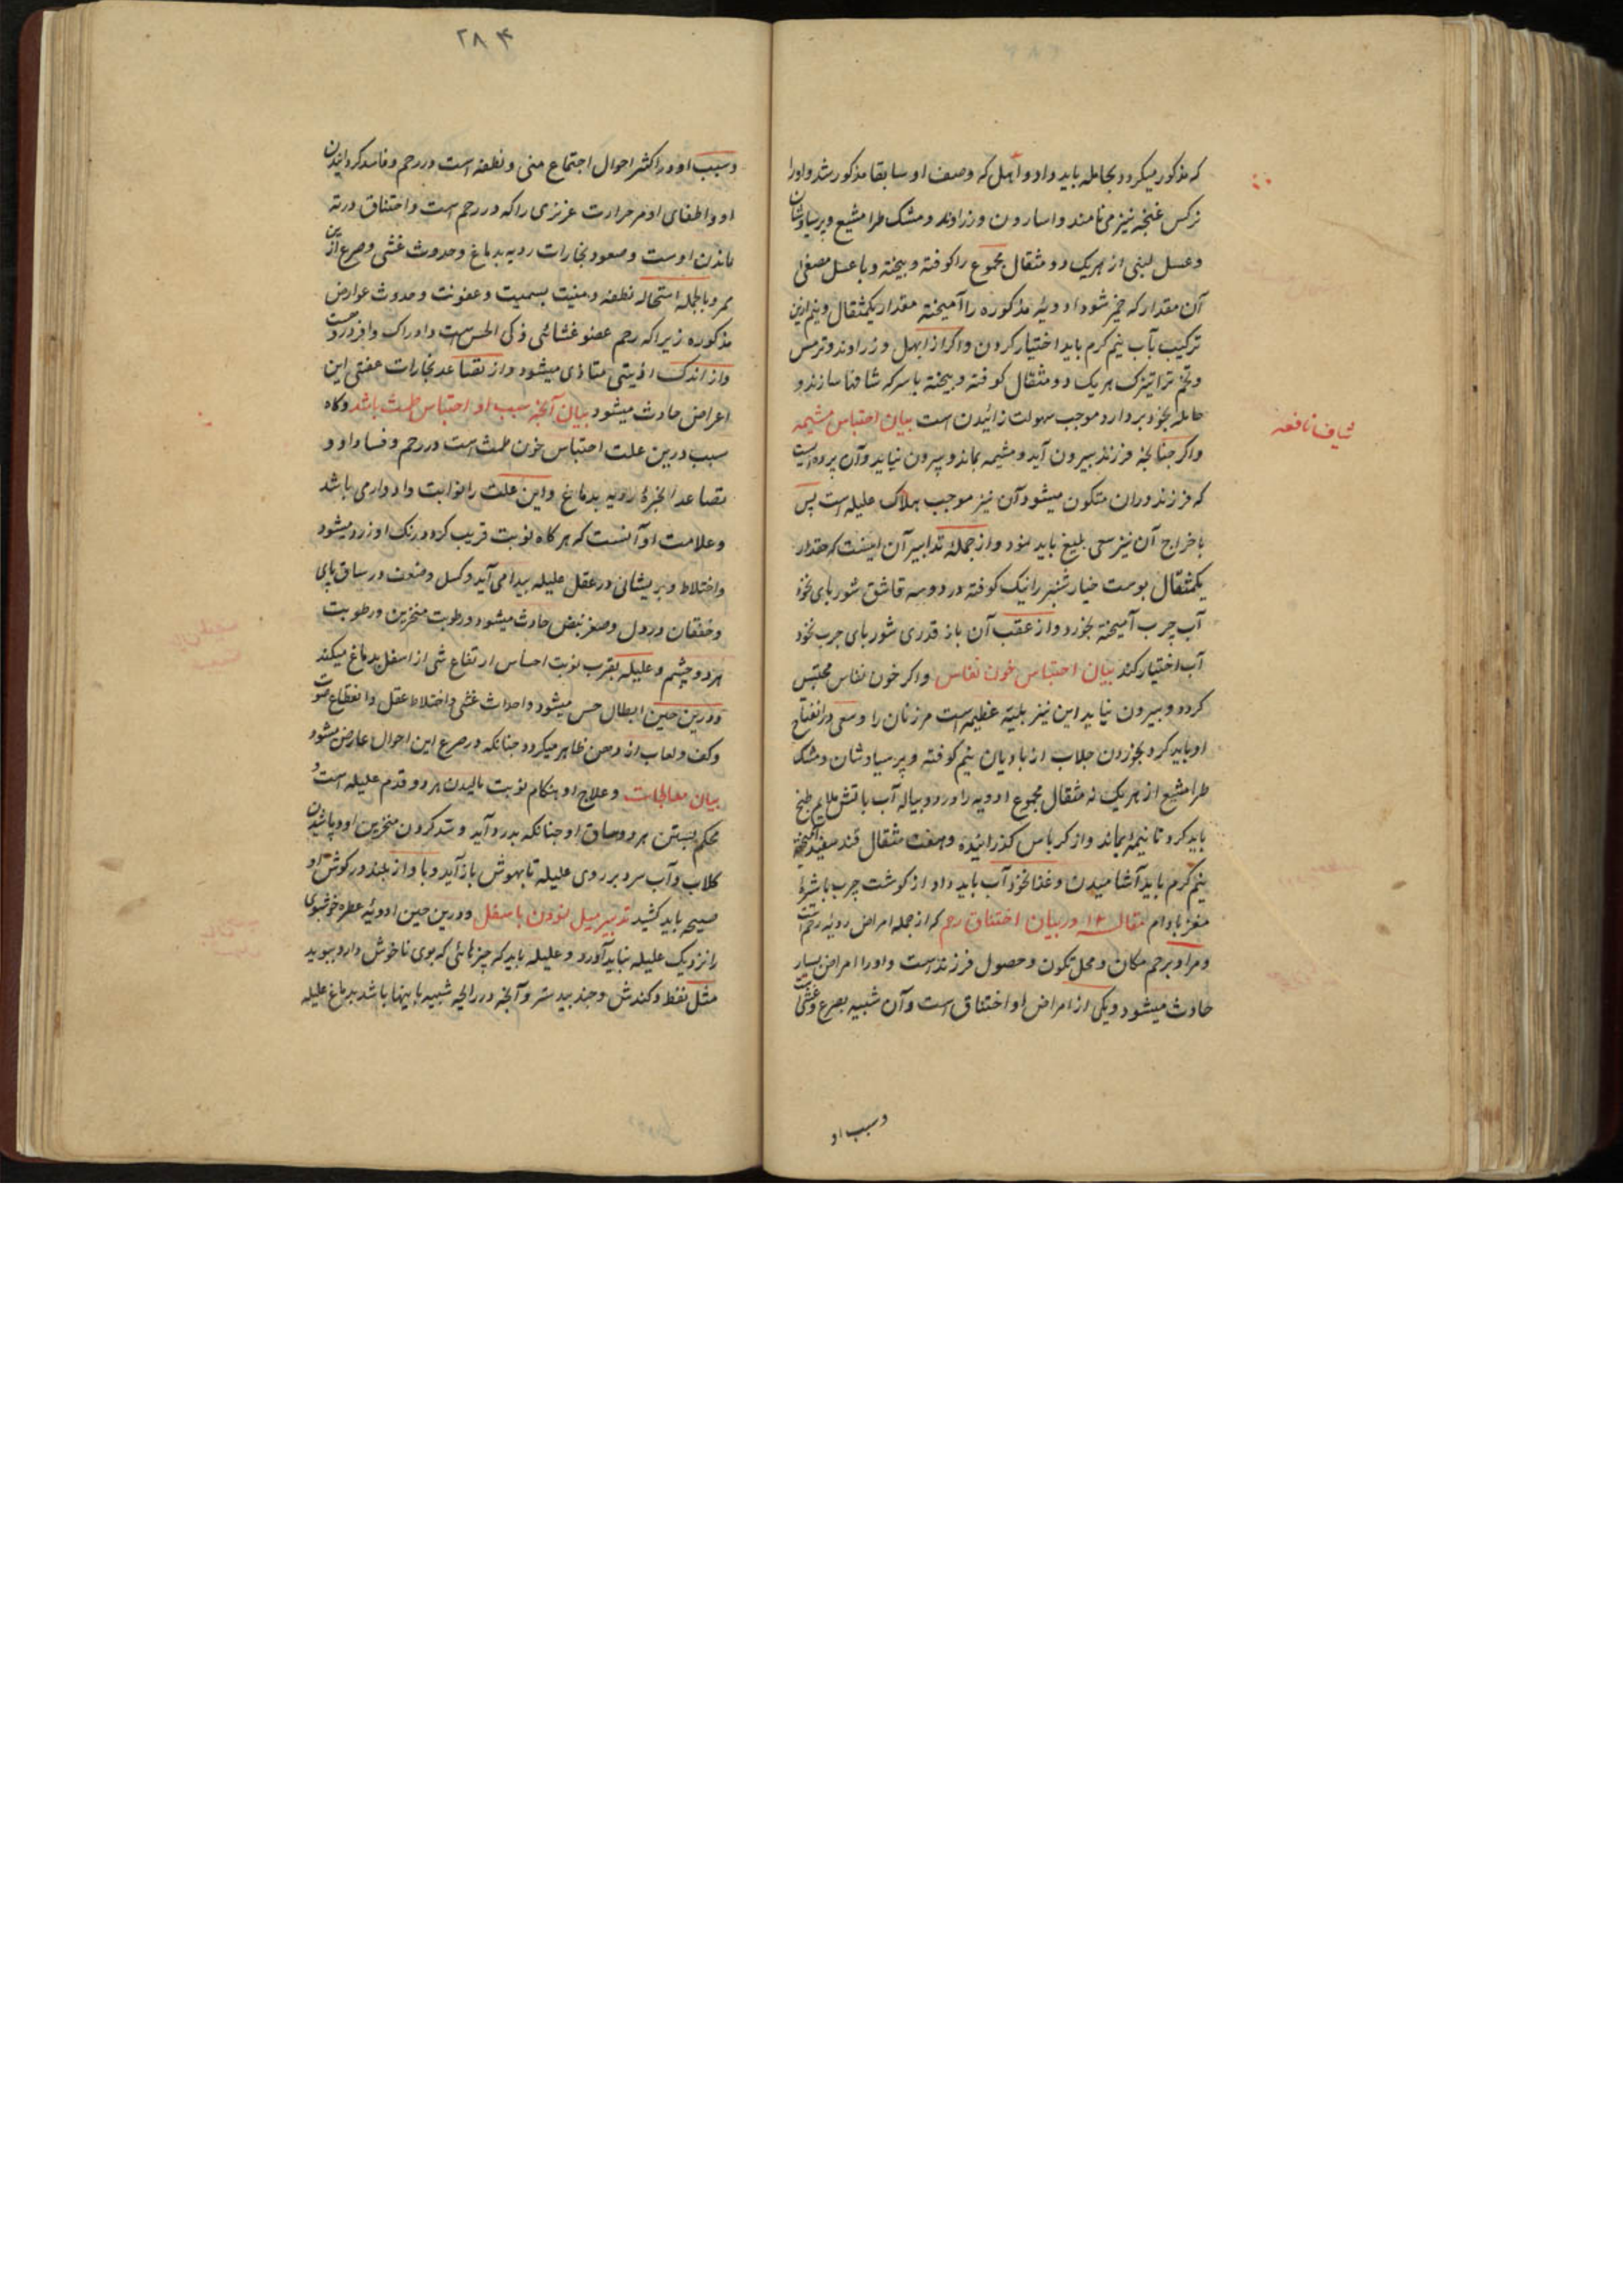 که مذکور میکردد بحامله باید داد و ابهل که وصف او سابقا مذکور شد و اورا
نرکس غنچه نیز می نامند و اسارون و زراوند و مشک طرامشیع و پرسیاوشان
و عسل لبنی از هریک دو مثقال مجموع را کوفته و بیخته و با عسل مصفی
آن مقدار که خمیر شود ادویهٔ مذکوره را آمیخته مقدار یکمثقال و نیم ازین
ترکیب بآب نیم کرم باید اختیار کردن و اکر از ابهل و زراوند و ترمس
و تخم تراتیزک هریک دو مثقال کوفته و بیخته با سرکه شافها سازند و
حامله بخود بردارد موجب سهولت زائیدن است بیان احتباس مشیمه
شیاف نافعه
و اکر چنانچه فرزند بیرون آید و مشیمه بماند و بیرون نیاید و آن پرده ایست
که فرزند دران متکون میشود آن نیز موجب هلاک علیله است پس
باخراج آن نیز سعی بلیغ باید نمود و از جملهٔ تدابیر آن اینست که مقدار
یکمثقال پوست خیارشنبر را نیک کوفته در دو سه قاشق شوربای نخود
آب چرب آمیخته بخورد و از عقب آن باز قدری شوربای چرب نخود
آب اختیار کند بیان احتباس خون نفاس و اکر خون نفاس محتبس
کردد و بیرون نیاید این نیز بلیهٔ عظیمه است مر زنان را و سعی در انفتاح
او باید کرد بخوردن جلاب از بادیان نیم کوفته و پرسیاوشان و مشک
طرامشیع از هریک نه مثقال مجموع ادویه را در دو پیاله آب باتش ملایم طبخ
باید کرد تا نیمه بماند و از کرباس کذرانیده و هفت مثقال قند سفید آمیخته
نیم کرم باید آشامیدن و غذا نخود آب باید داد از کوشت چرب با شیرهٔ
مغز بادام مقاله ۱۴ در بیان اختناق رحم که از جمله امراض ردیهٔ رحم است
و مراد برحم مکان و محل تکون و حصول فرزندست و اورا امراض بسیار
حادث میشود و یکی از امراض او اختناق است و آن شبیه بصرع و غشی است
و سبب او
۲۸۴
و سبب او در اکثر احوال اجتماع منی و نطفه است در رحم و فاسد کردانیدن
او و اطفای او مر حرارت عزیزی را که در رحم است و اختناق در ته
ماندن اوست و صعود بخارات ردیه بدماغ و حدوث غشی و صرع ازین
ممر و بالجمله استحاله نطفه و منیت بسمیت و عفونت و حدوث عوارض
مذکوره زیرا که رحم عضو غشائی ذکی الحس است و ادراک
و از اندک اذیتی متاذی میشود و از تصاعد بخارات عفنی این
اعراض حادث میشود بیان آنچه سبب او احتباس طمث باشد و کاه
سبب درین علت احتباس خون طمث است در رحم و فساد او و
تصاعد ابخرهٔ ردیه بدماغ و این علت را نوابت و ادواری باشد
و علامت او آنست که هرکاه نوبت قریب کردد رنک او زرد میشود
و اختلاط و پریشانی در عقل علیله پیدا می آید و کسل و ضعف در ساق پای
و خفقان در دل و صغر نبض حادث میشود و رطوبت منخرین و رطوبت
هر دو چشم و علیله بقرب نوبت احساس ارتفاع شی از اسفل بدماغ میکند
و درین حین ابطال حس میشود و احداث غشی و اختلاط عقل و انقطاع صوت
و کف و لعاب از دهن ظاهر میکردد چنانکه در صرع این احوال عارض میشود
بیان معالجات و علاج او هنکام نوبت مالیدن هر دو قدم علیله است و
محکم بستن هر دو ساق او چنانکه بدرد آید و سد کردن منخرین او و پاشیدن
کلاب و آب سرد بر روی علیله تا بهوش باز آید و باواز بلند در کوش او
صیحه باید کشید تدبیر میل نمودن باسفل و درین حین ادویهٔ عطره خوشبوی
را نزدیک علیله نباید آورد و علیله باید که چیزهائی که بوی ناخوش دارد ببوید
مثل نفط و کندش و جندبیدستر و آنچه در رایحه شبیه باینها باشد بدماغ علیله